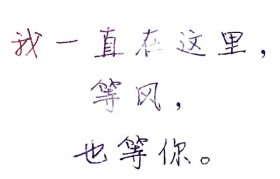 我一直在这里，
等风，
也等你。